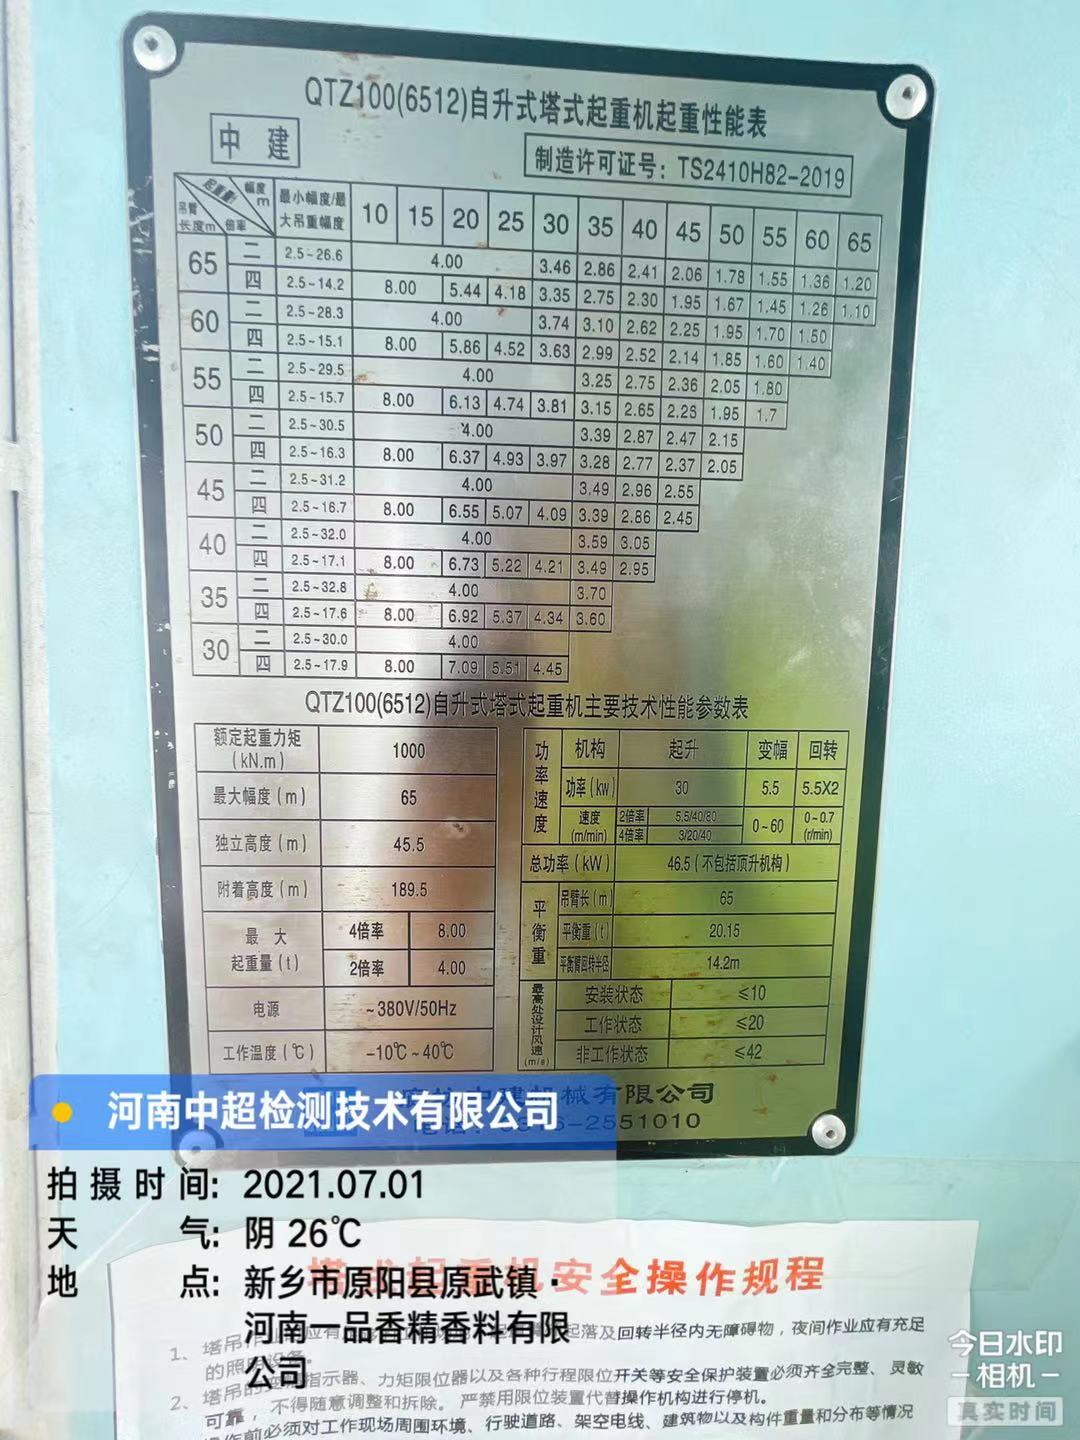 QTZ100(6512)自升式塔式起重机起重性能表
中建
制造许可证号：TS2410H82-2019
起重量t 幅度m 吊臂长度m 倍率 最小幅度/最大吊重幅度 10 15 20 25 30 35 40 45 50 55 60 65
65 二 2.5~26.6 4.00 3.46 2.86 2.41 2.06 1.78 1.55 1.36 1.20
四 2.5~14.2 8.00 5.44 4.18 3.35 2.75 2.30 1.95 1.67 1.45 1.26 1.10
60 二 2.5~28.3 4.00 3.74 3.10 2.62 2.25 1.95 1.70 1.50
四 2.5~15.1 8.00 5.86 4.52 3.63 2.99 2.52 2.14 1.85 1.60 1.40
55 二 2.5~29.5 4.00 3.25 2.75 2.36 2.05 1.80
四 2.5~15.7 8.00 6.13 4.74 3.81 3.15 2.65 2.26 1.95 1.7
50 二 2.5~30.5 4.00 3.39 2.87 2.47 2.15
四 2.5~16.3 8.00 6.37 4.93 3.97 3.28 2.77 2.37 2.05
45 二 2.5~31.2 4.00 3.49 2.96 2.55
四 2.5~16.7 8.00 6.55 5.07 4.09 3.39 2.86 2.45
40 二 2.5~32.0 4.00 3.59 3.05
四 2.5~17.1 8.00 6.73 5.22 4.21 3.49 2.95
35 二 2.5~32.8 4.00 3.70
四 2.5~17.6 8.00 6.92 5.37 4.34 3.60
30 二 2.5~30.0 4.00
四 2.5~17.9 8.00 7.09 5.51 4.45
QTZ100(6512)自升式塔式起重机主要技术性能参数表
额定起重力矩(kN.m) 1000
最大幅度(m) 65
独立高度(m) 45.5
附着高度(m) 189.5
最大起重量(t) 4倍率 8.00
2倍率 4.00
电源 ~380V/50Hz
工作温度(℃) -10℃~40℃
功率速度 机构 起升 变幅 回转
功率(kw) 30 5.5 5.5X2
速度(m/min) 2倍率 5.5/40/80 0~60 0~0.7(r/min)
4倍率 3/20/40
总功率(kW) 46.5(不包括顶升机构)
平衡重 吊臂长(m) 65
平衡重(t) 20.15
平衡臂回转半径 14.2m
最高处设计风速(m/s) 安装状态 ≤10
工作状态 ≤20
非工作状态 ≤42
中建机械有限公司
2551010
河南中超检测技术有限公司
拍摄时间：2021.07.01
天气：阴 26℃
地点：新乡市原阳县原武镇·
河南一品香精香料有限
公司
塔式起重机安全操作规程
1、塔吊作业 应有 起落及回转半径内无障碍物，夜间作业应有充足
的照明设备。
2、塔吊的变幅指示器、力矩限位器以及各种行程限位开关等安全保护装置必须齐全完整、灵敏
可靠，不得随意调整和拆除。严禁用限位装置代替操作机构进行停机。
操作前必须对工作现场周围环境、行驶道路、架空电线、建筑物以及构件重量和分布等情况
今日水印
相机
真实时间